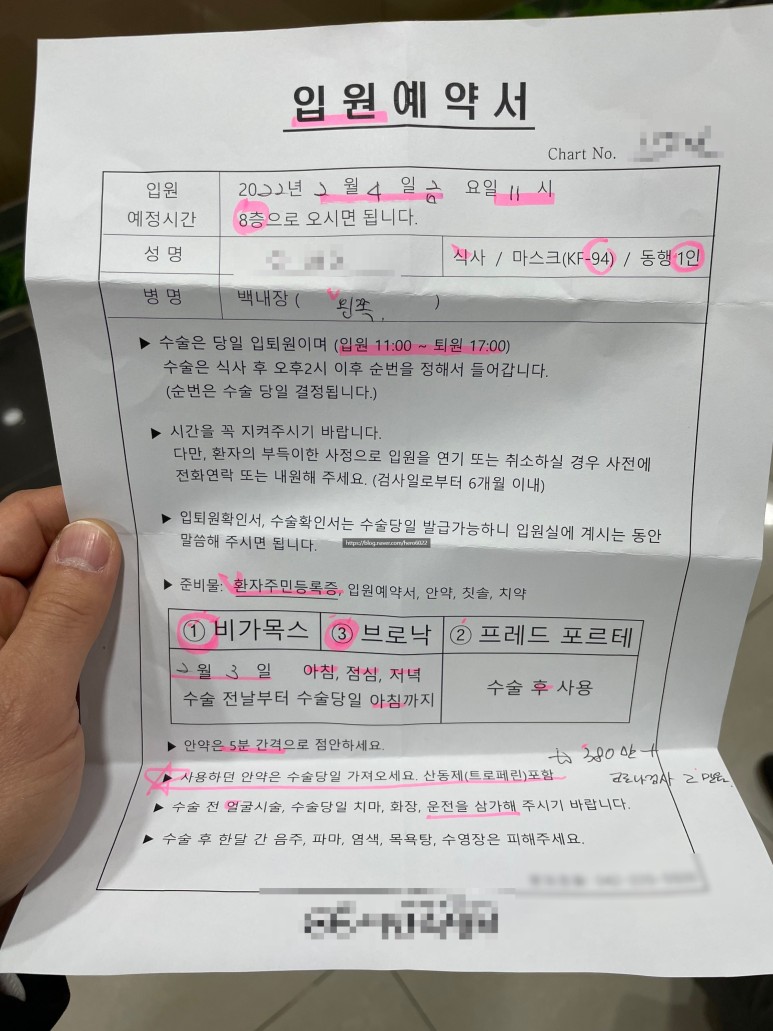 입원예약서
Chart No.
입원 예정시간
2022년 2월 4일 금요일 11시
8층으로 오시면 됩니다.
성 명
식사 / 마스크(KF-94) / 동행 1인
병 명
백내장 ( 왼쪽 )
▶ 수술은 당일 입퇴원이며 (입원 11:00 ~ 퇴원 17:00)
수술은 식사 후 오후2시 이후 순번을 정해서 들어갑니다.
(순번은 수술 당일 결정됩니다.)
▶ 시간을 꼭 지켜주시기 바랍니다.
다만, 환자의 부득이한 사정으로 입원을 연기 또는 취소하실 경우 사전에
전화연락 또는 내원해 주세요. (검사일로부터 6개월 이내)
▶ 입퇴원확인서, 수술확인서는 수술당일 발급가능하니 입원실에 계시는 동안
말씀해 주시면 됩니다.
https://blog.naver.com/hero6022
▶ 준비물: 환자주민등록증, 입원예약서, 안약, 칫솔, 치약
① 비가목스 ③ 브로낙 ② 프레드 포르테
2월 3일 아침, 점심, 저녁
수술 전날부터 수술당일 아침까지
수술 후 사용
▶ 안약은 5분 간격으로 점안하세요.
380만
▶ 사용하던 안약은 수술당일 가져오세요. 산동제(트로페린)포함
코로나검사 2만원
▶ 수술 전 얼굴시술, 수술당일 치마, 화장, 운전을 삼가해 주시기 바랍니다.
▶ 수술 후 한달 간 음주, 파마, 염색, 목욕탕, 수영장은 피해주세요.